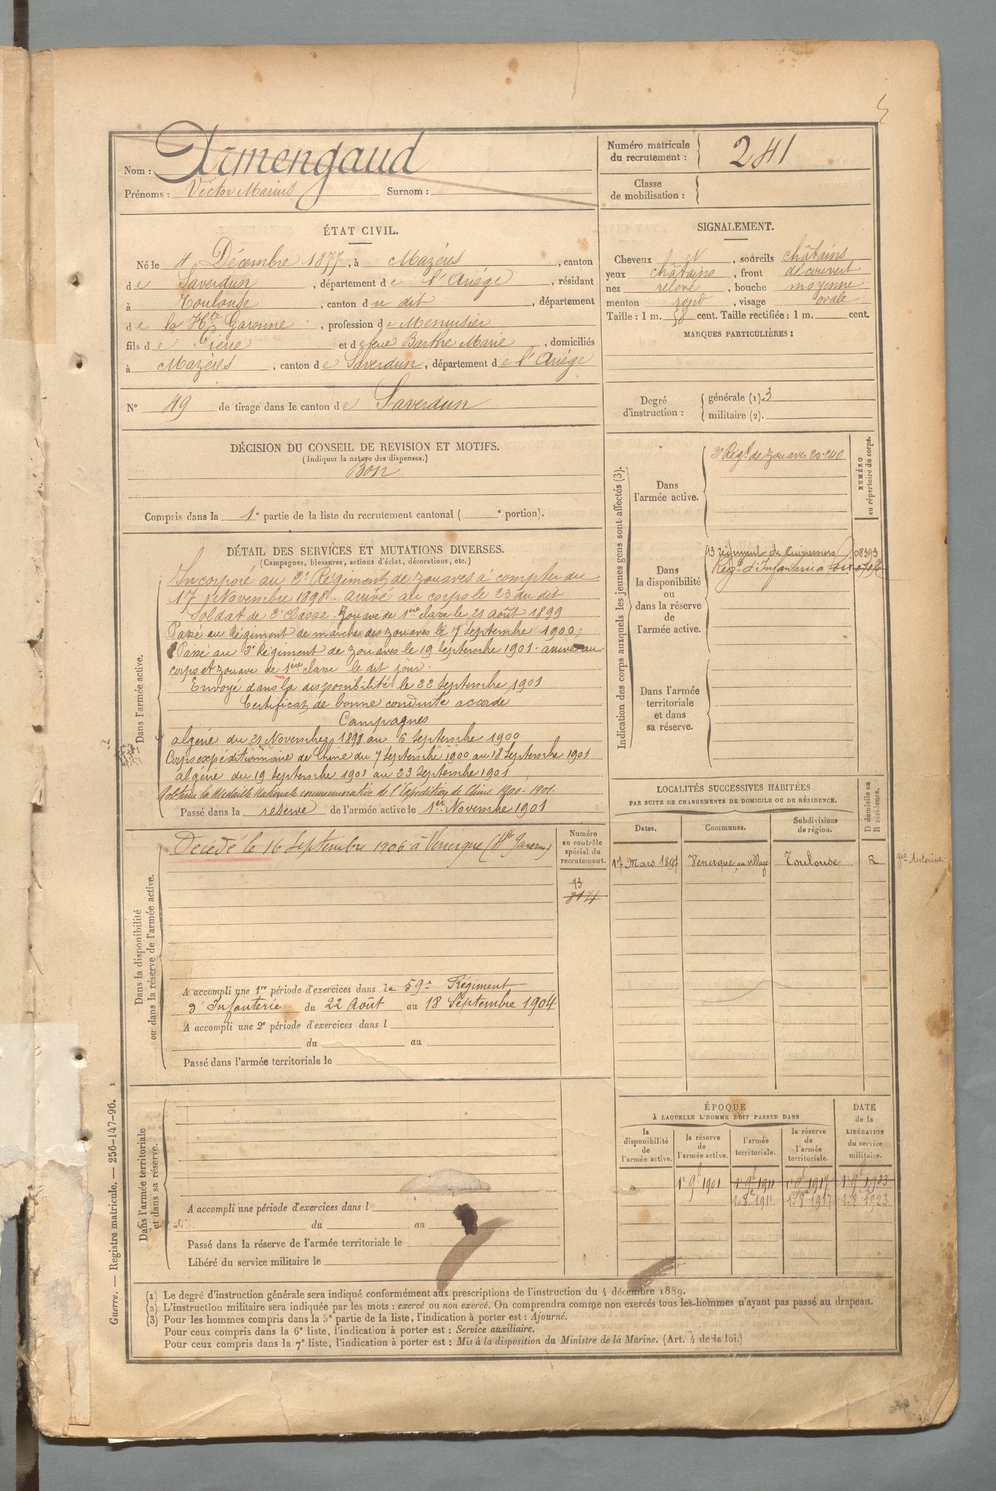 Nom : Armengaud
Prénoms : Victor Marius Surnom :
Numéro matricule du recrutement : 241
Classe de mobilisation :
ÉTAT CIVIL.
Né le 4 Décembre 1877, à Mazères, canton
de Saverdun, département de l'Ariége, résidant
à Toulouse, canton du dit, département
de la Hte Garonne, profession de Menuisier
fils de et de feue Barthe Marie, domiciliés
à Mazères, canton de Saverdun, département de l'Ariége
N° 49 de tirage dans le canton de Saverdun
SIGNALEMENT.
Cheveux et, sourcils châtains
yeux châtains, front découvert
nez relevé, bouche moyenne
menton rond, visage ovale
Taille : 1 m. cent. Taille rectifiée : 1 m. cent.
MARQUES PARTICULIÈRES :
Degré d'instruction : générale (1). 3
militaire (2).
DÉCISION DU CONSEIL DE REVISION ET MOTIFS.
(Indiquer la nature des dispenses.)
Bon
Compris dans la 1e partie de la liste du recrutement cantonal ( e portion).
DÉTAIL DES SERVICES ET MUTATIONS DIVERSES.
(Campagnes, blessures, actions d'éclat, décorations, etc.)
Dans l'armée active.
Incorporé au 2e Régiment de zouaves à compter du
17 Novembre 1898 arrivé au corps le 23 du dit
Soldat de 2e Classe. Zouave de 1ère classe le 21 août 1899
Passé au Régiment de marche des zouaves le 7 Septembre 1900;
Passé au 3e Régiment de zouaves le 19 Septembre 1901. arrivé au
corps et zouave de 1ère classe le dit jour.
Envoyé dans la disponibilité le 22 Septembre 1901
Certificat de bonne conduite accordé
Campagnes
algérie du 23 Novembre 1898 au 6 Septembre 1900
Corps expéditionnaire de Chine du 7 Septembre 1900 au 18 Septembre 1901
algérie du 19 Septembre 1901 au 23 Septembre 1901
Obtenu la Médaille Nationale commémorative de l'Expédition de Chine 1900-1901.
Passé dans la réserve de l'armée active le 1er Novembre 1901
Indication des corps auxquels les jeunes gens sont affectés (3).
NUMÉRO au répertoire du corps.
Dans l'armée active.
2e Régt de zouaves
Dans la disponibilité ou dans la réserve de l'armée active.
13 régiment de Cuirassiers 08393
Régt d'Infanterie
Dans l'armée territoriale et dans sa réserve.
LOCALITÉS SUCCESSIVES HABITÉES
PAR SUITE DE CHANGEMENTS DE DOMICILE OU DE RÉSIDENCE.
Dates. Communes. Subdivisions de région. D domicile ou R résidence.
17 Mars 1897 Venerque, au village Toulouse R
Dans la disponibilité ou dans la réserve de l'armée active.
Numéro au contrôle spécial du recrutement.
Décédé le 16 Septembre 1906 à Venerque (Hte Garonne)
13
A accompli une 1re période d'exercices dans le 59e Régiment
d'Infanterie du 22 Août au 18 Septembre 1904
A accompli une 2e période d'exercices dans l
du au
Passé dans l'armée territoriale le
Dans l'armée territoriale et dans sa réserve.
A accompli une période d'exercices dans l
du au
Passé dans la réserve de l'armée territoriale le
Libéré du service militaire le
ÉPOQUE
À LAQUELLE L'HOMME DOIT PASSER DANS
DATE de la LIBÉRATION du service militaire.
la disponibilité de l'armée active. la réserve de l'armée active. l'armée territoriale. la réserve de l'armée territoriale.
1er 9bre 1901 1er 9bre 1911 1er 9bre 1917 1er 9bre 1923
1er 8bre 1911 1er 8bre 1917 1er 8bre 1923
(1) Le degré d'instruction générale sera indiqué conformément aux prescriptions de l'instruction du 4 décembre 1889.
(2) L'instruction militaire sera indiquée par les mots : exercé ou non exercé. On comprendra comme non exercés tous les hommes n'ayant pas passé au drapeau.
(3) Pour les hommes compris dans la 5e partie de la liste, l'indication à porter est : Ajourné.
Pour ceux compris dans la 6e liste, l'indication à porter est : Service auxiliaire.
Pour ceux compris dans la 7e liste, l'indication à porter est : Mis à la disposition du Ministre de la Marine. (Art. 4 de la loi.)
Guerre. — Registre matricule. — 256-147-96. 1